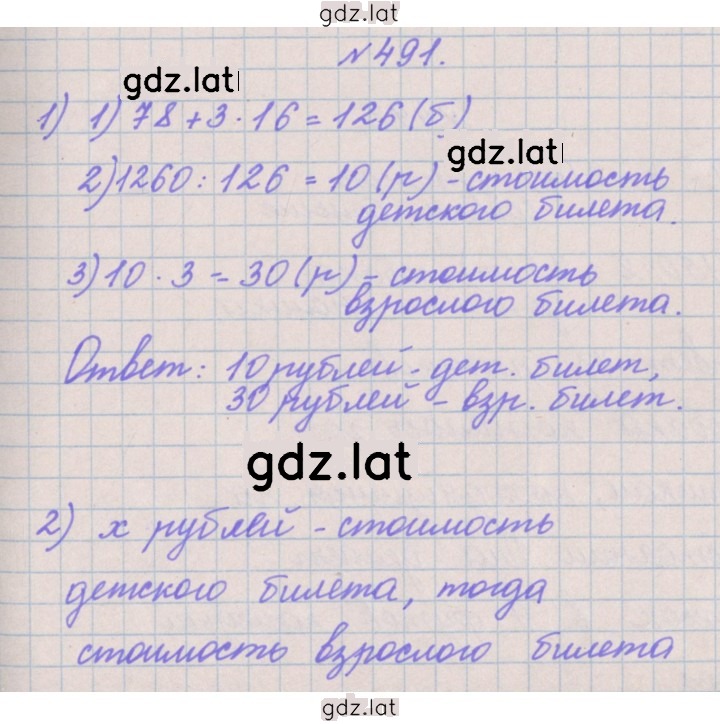 gdz.lat
№491.
gdz.lat
1) 1) 78 + 3 · 16 = 126 (б)
gdz.lat
2) 1260 : 126 = 10 (р) - стоимость
детского билета.
3) 10 · 3 = 30 (р) - стоимость
взрослого билета.
Ответ: 10 рублей - дет. билет,
30 рублей - взр. билет.
gdz.lat
2) х рублей - стоимость
детского билета, тогда
стоимость взрослого билета
gdz.lat